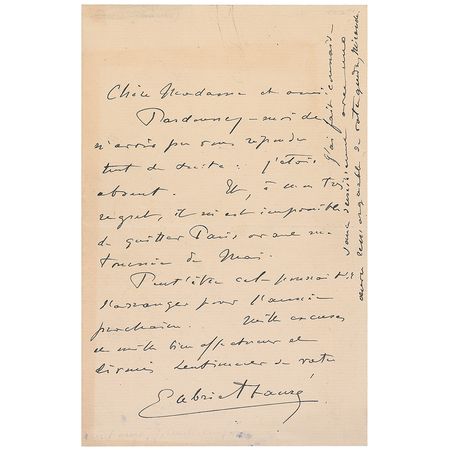 Chère Madame et amie
Pardonnez-moi de
n'avoir pu vous répondre
tout de suite : j'étais
absent. Et, à mon très
regret, il m'est impossible
de quitter Paris, avant
de Mai.
Peut'être cela pourrait-il
s'arranger pour l'année
prochaine. Mille excuses
et mille bien affectueux et
dévoués sentiments de votre
Gabriel Fauré
J'ai fait connais-
sance avec une
œuvre remarquable de votre